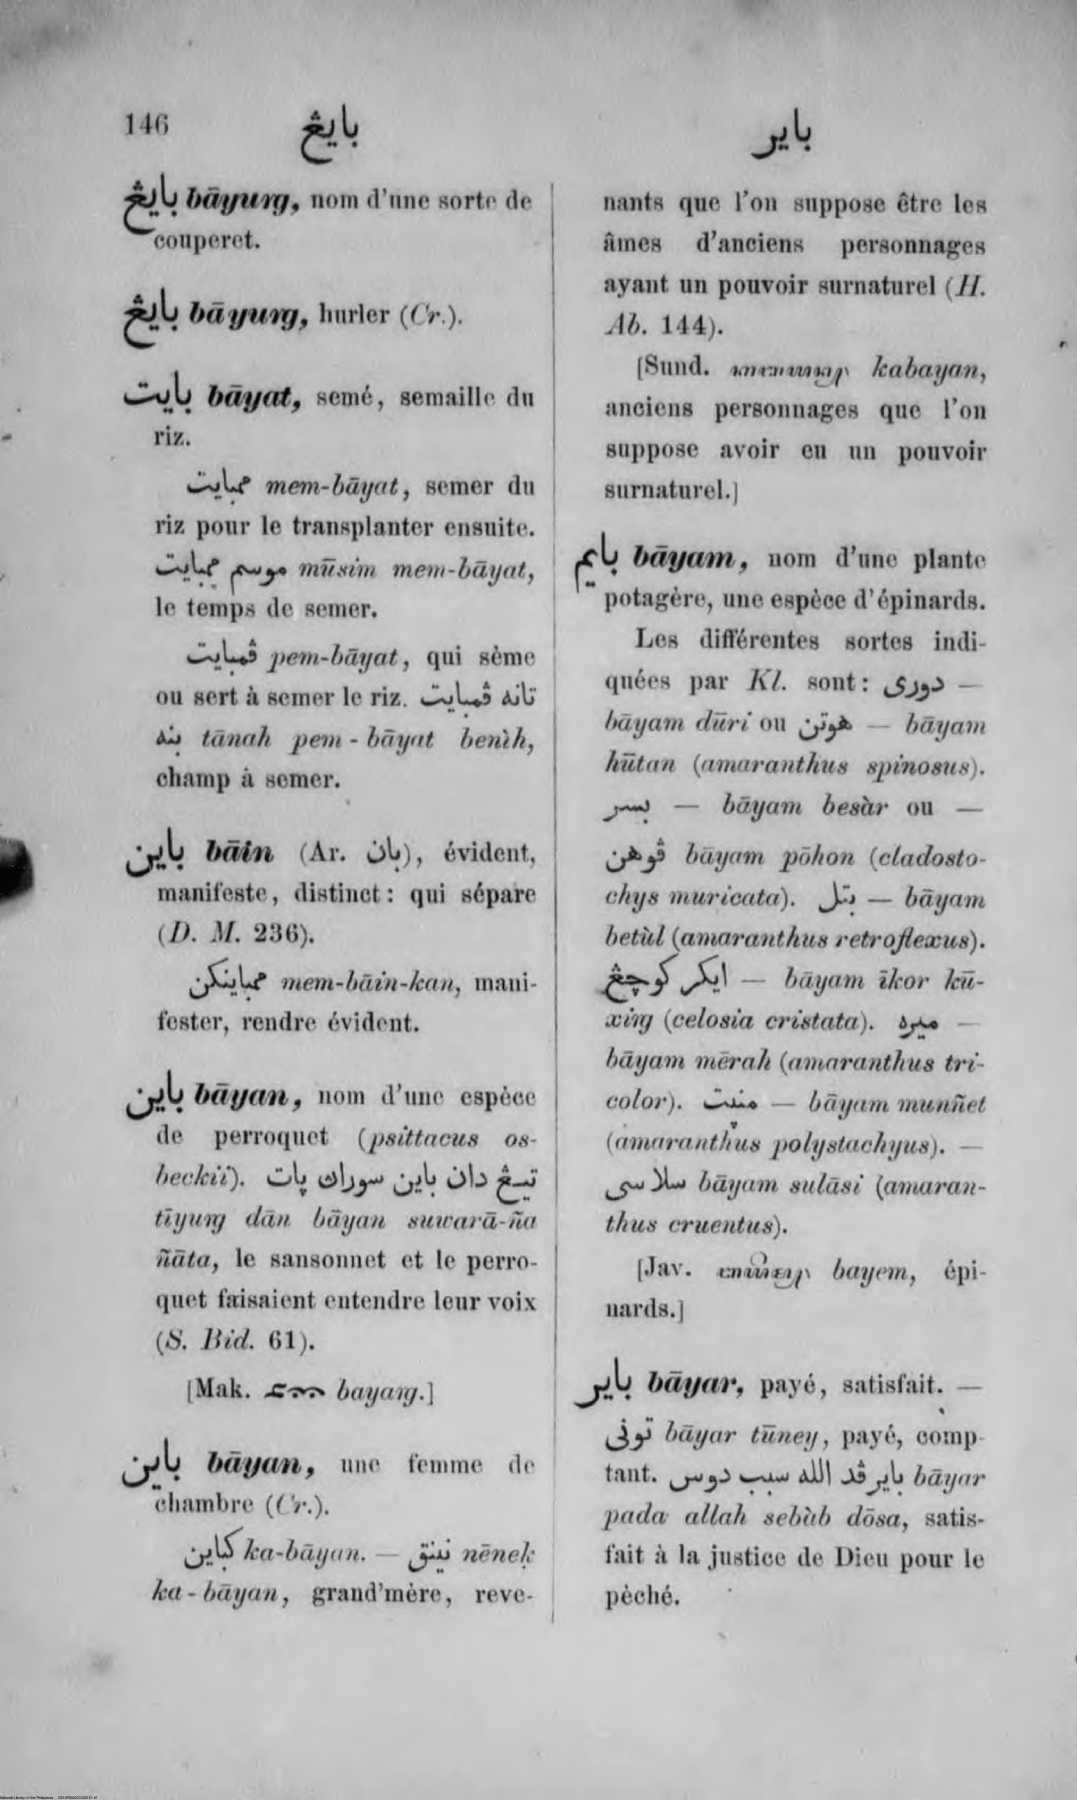 146
بايڠ
باير
بايڠ bāyurg, nom d'une sorte de
couperet.
بايڠ bāyurg, hurler (Cr.).
بايت bāyat, semé, semaille du
riz.
ممبايت mem-bāyat, semer du
riz pour le transplanter ensuite.
موسم ممبايت mūsim mem-bāyat,
le temps de semer.
ڤمبايت pem-bāyat, qui sème
ou sert à semer le riz. تانه ڤمبايت
بنه tānah pem-bāyat benìh,
champ à semer.
باين bāin (Ar. بان), évident,
manifeste, distinct: qui sépare
(D. M. 236).
ممباينكن mem-bāin-kan, mani-
fester, rendre évident.
باين bāyan, nom d'une espèce
de perroquet (psittacus os-
beckii). تيڠ دان باين سوراڽ ڽات
tīyurg dān bāyan suwarā-ña
ñāta, le sansonnet et le perro-
quet faisaient entendre leur voix
(S. Bid. 61).
[Mak. bayarg.]
باين bāyan, une femme de
chambre (Cr.).
كباين ka-bāyan. — نينق nēneḳ
ka-bāyan, grand'mère, reve-
nants que l'on suppose être les
âmes d'anciens personnages
ayant un pouvoir surnaturel (H.
Ab. 144).
[Sund. kabayan,
anciens personnages que l'on
suppose avoir eu un pouvoir
surnaturel.]
بايم bāyam, nom d'une plante
potagère, une espèce d'épinards.
Les différentes sortes indi-
quées par Kl. sont: دوري —
bāyam dūri ou هوتن — bāyam
hūtan (amaranthus spinosus).
بسر — bāyam besàr ou —
ڤوهن bāyam pōhon (cladosto-
chys muricata). بتل — bāyam
betùl (amaranthus retroflexus).
ايكر كوچڠ — bāyam īkor kū-
xirg (celosia cristata). ميره —
bāyam mērah (amaranthus tri-
color). — bāyam munñet
(amaranthus polystachyus). —
سلاسي bāyam sulāsi (amaran-
thus cruentus).
[Jav. bayem, épi-
nards.]
باير bāyar, payé, satisfait. —
توني bāyar tūney, payé, comp-
tant. باير ڤد الله سبب دوس bāyar
pada allah sebùb dōsa, satis-
fait à la justice de Dieu pour le
pèché.